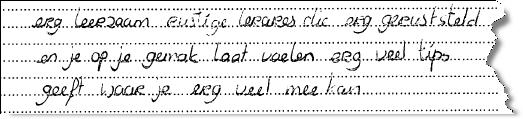 erg leerzaam rustige lerares die erg geruststeld
en je op je gemak laat voelen erg veel tips
geeft waar je erg veel mee kan